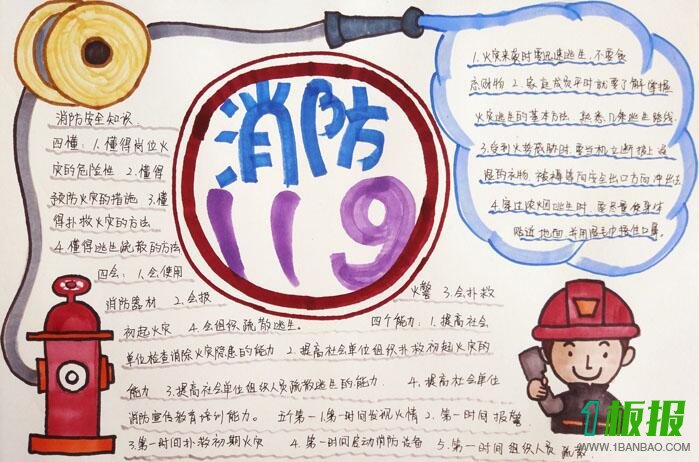 消防
119
消防安全知识
四懂：1.懂得岗位火
灾的危险性 2.懂得
预防火灾的措施 3.懂
得扑救火灾的方法
4.懂得逃生疏散的方法
四会：1.会使用
消防器材 2.会报
火警 3.会扑救
初起火灾 4.会组织疏散逃生。 四个能力：1.提高社会
单位检查消除火灾隐患的能力 2.提高社会单位组织扑救初起火灾的
能力 3.提高社会单位组织人员疏散逃生的能力 4.提高社会单位
消防宣传教育培训能力。 五个第一1.第一时间发现火情 2.第一时间报警
3.第一时间扑救初期火灾 4.第一时间启动消防设备 5.第一时间组织人员疏散
1.火灾来袭时要迅速逃生,不要贪
恋财物 2.家庭成员平时就要了解掌握
火灾逃生的基本方法,熟悉几条逃生路线
3.受到火势威胁时,要当机立断披上浸
湿的衣物、被褥等向安全出口方向冲出去
4.穿过浓烟逃生时,要尽量使身体
贴近地面,并用湿毛巾捂住口鼻。
1板报
WWW.1BANBAO.COM